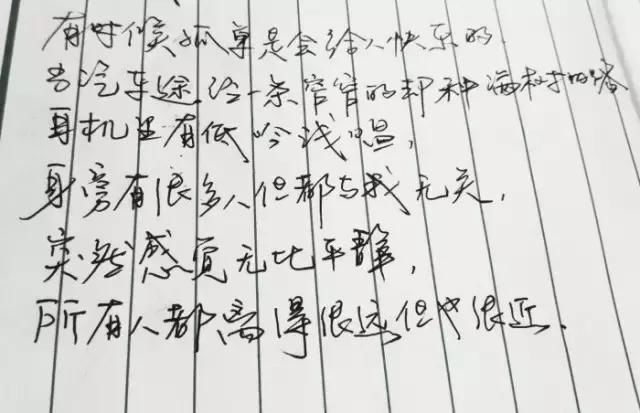 有时候孤单是会给人快乐的.
当汽车途径一条窄窄的却种满树的路
耳机里有低吟浅唱,
身旁有很多人但都与我无关,
突然感觉无比平静,
所有人都离得很远但也很近.